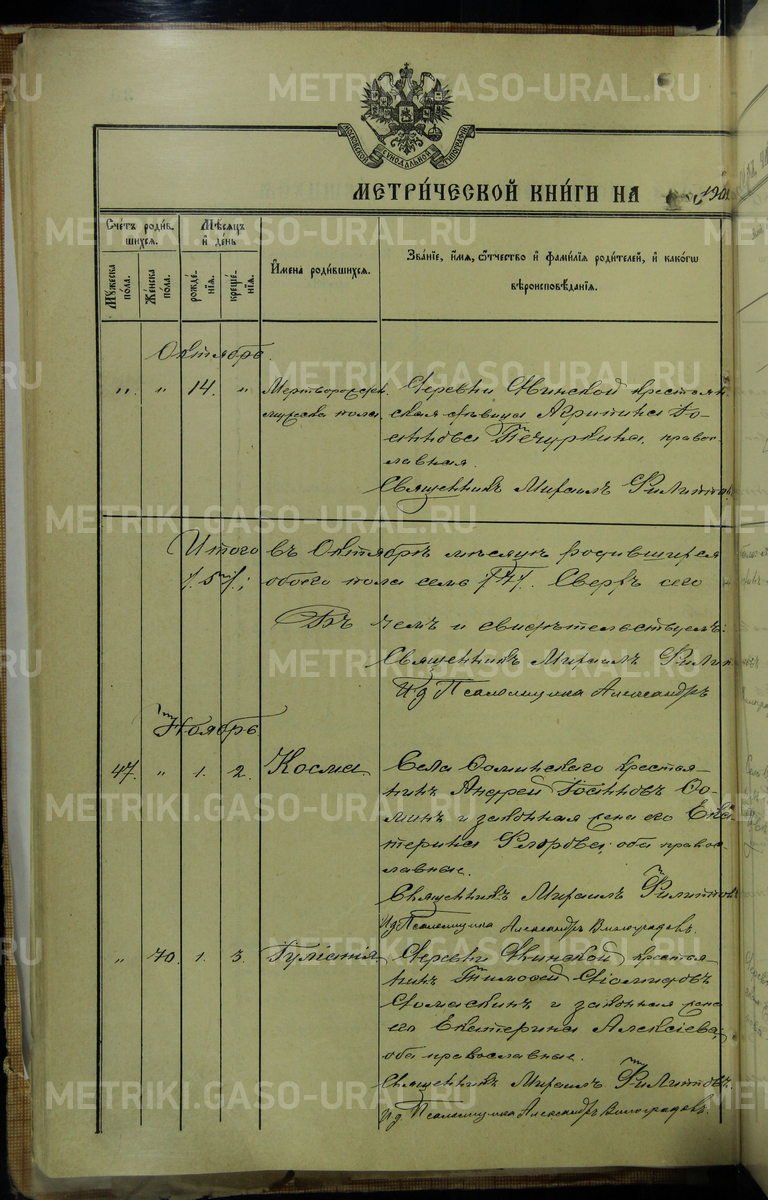 МОСКОВСКОЙ СѴНОДАЛЬНОЙ ТИПОГРАФІИ
МЕТРИ́ЧЕСКОЙ КНИ́ГИ НА 190
Счётъ роди́в- шихся.
Мꙋжеска по́ла.
Же́нска по́ла.
Мѣ́сяцъ и҆ де́нь
рожде́- нїѧ.
креще́- нїѧ.
И҆мена роди́вшихся.
Зва́нїе, и҆́мѧ, ѻ҆́тчество и҆ фами́лїѧ роди́телей, и҆ како́гѡ
вѣроисповѣ́данїѧ.
Октябрь.
" " 14. " Мертворожден. мужеска пола.
Деревни Свинской крестьян-
ская дѣвица Агрипина Іо-
сифова Печуркина, право-
славная.
Священникъ Михаилъ Филиппов
Итого въ Октябрѣ мѣсяцѣ родившихся
обоего пола семь /7/. Сверхъ сего
Въ чемъ и свидѣтельствуемъ:
Священникъ Михаилъ Филип
И д Псаломщика Александръ
Ноябрь
47. " 1. 2. Косма
Села Соминскаго крестья-
нинъ Андрей Іосифовъ Со-
минъ и законная жена его Ека-
терина Флорова, оба право-
славные.
Священникъ Михаилъ Филиппов
И д Псаломщика Александръ Виноградовъ.
" 40. 1. 3. Іуліанія
Деревни Свинской крестья-
нинъ Тимофей Діомидовъ
и законная жена
его Екатерина Алексіева,
оба православные.
Священникъ Михаилъ Филипповъ.
И д Псаломщика Александръ Виноградовъ.
METRIKI.GASO-URAL.RU